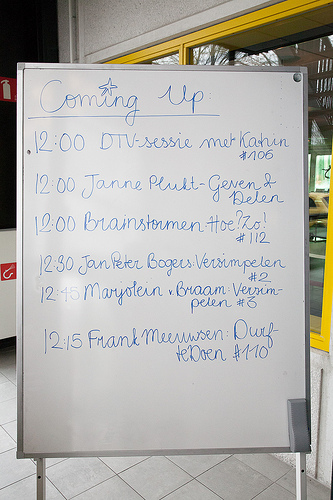 Coming Up:
12:00 DTV-sessie met Katrin
#106
12:00 Janne Plukt - Geven &
Delen
12:00 Brainstormen Hoe? Zo!
#112
12:30 JanPeter Bogers: Versimpelen
#2
12:45 Marjolein v. Braam: Versim-
pelen #3
12:15 Frank Meeuwsen: Durf-
teDoen #110